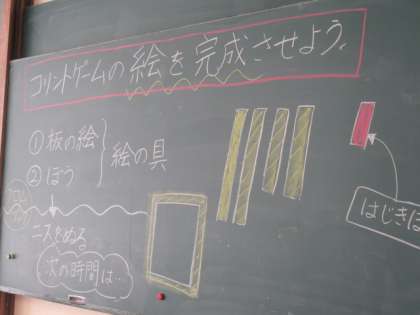 コリントゲームの絵を完成させよう。
①板の絵
②ぼう
絵の具
ニスをぬる
次の時間は…
はじきぼ